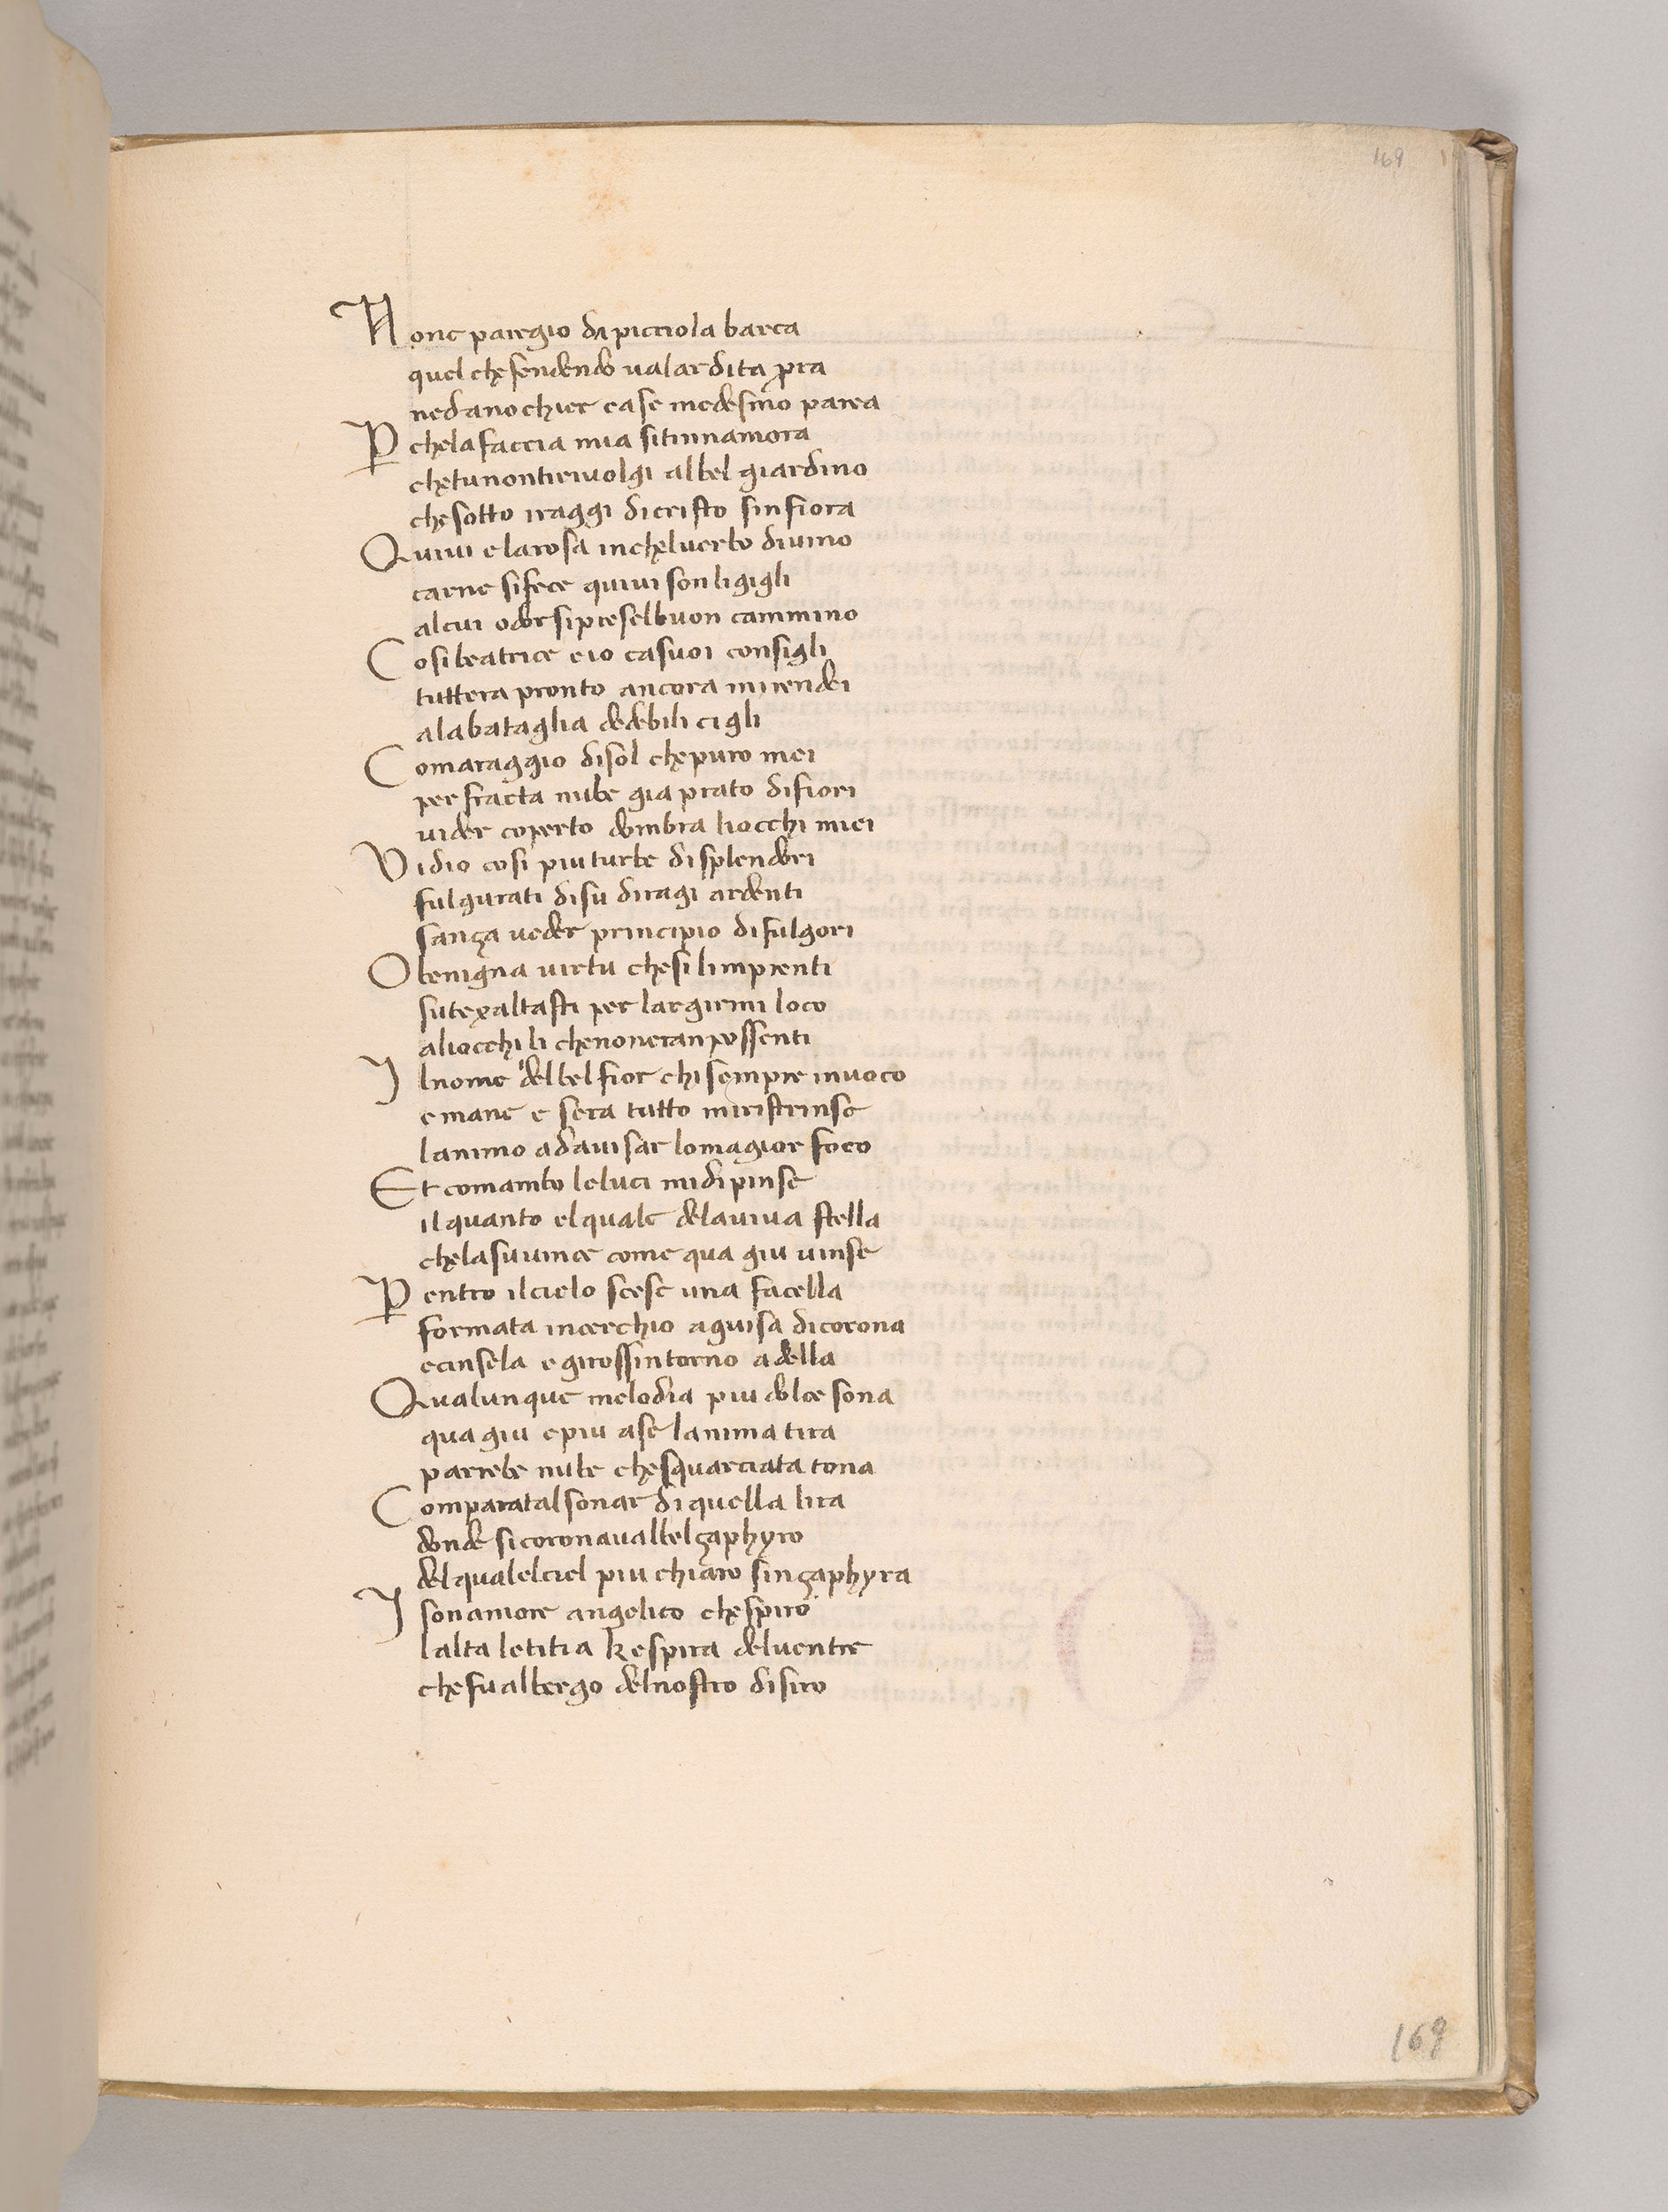 169
None paregio da picciola barca
quel che fendendo ua lardita pra
ne da nochier ca se medesmo parca
P che la faccia mia si tinnamora
che tu non ti riuolgi al bel giardino
che sotto i raggi di cristo sinfiora
Quiui e la rosa in chel uerbo diuino
carne si fece quiui son li gigli
al cui odor si prese l buon cammino
Cosi beatrice e io ca suoi consigli
tuttera pronto ancora mi rendei
a la bataglia de debili cigli
Coma raggio di sol che puro mei
per fracta nube gia prato di fiori
uider coperto dombra li occhi miei
Vidio cosi piu turbe di splendori
fulgurati di su di ragi ardenti
sanza ueder principio di fulgori
O benigna uirtu che si li imprenti
su texaltasti per largirmi loco
a li occhi li che non eran possenti
Il nome del bel fior chi sempre inuoco
e mane e sera tutto mi ristrinse
lanimo ad auisar lo magior foco
Et comambo le luci mi dipinse
il quanto el quale de la uiua stella
che la su uince come qua giu uinse
P entro il cielo scese una facella
formata in cerchio a guisa di corona
e cinsela e girossi intorno ad ella
Qualunque melodia piu dolce sona
qua giu e piu a se lanima tira
parrebe nube che squarciata tona
Comparata al sonar di quella lira
donde si coronaua l bel zaphyro
del quale l ciel piu chiaro sinzaphyra
I son amore angelico che spiro
lalta letitia ke spira del uentre
che fu albergo del nostro disiro
169